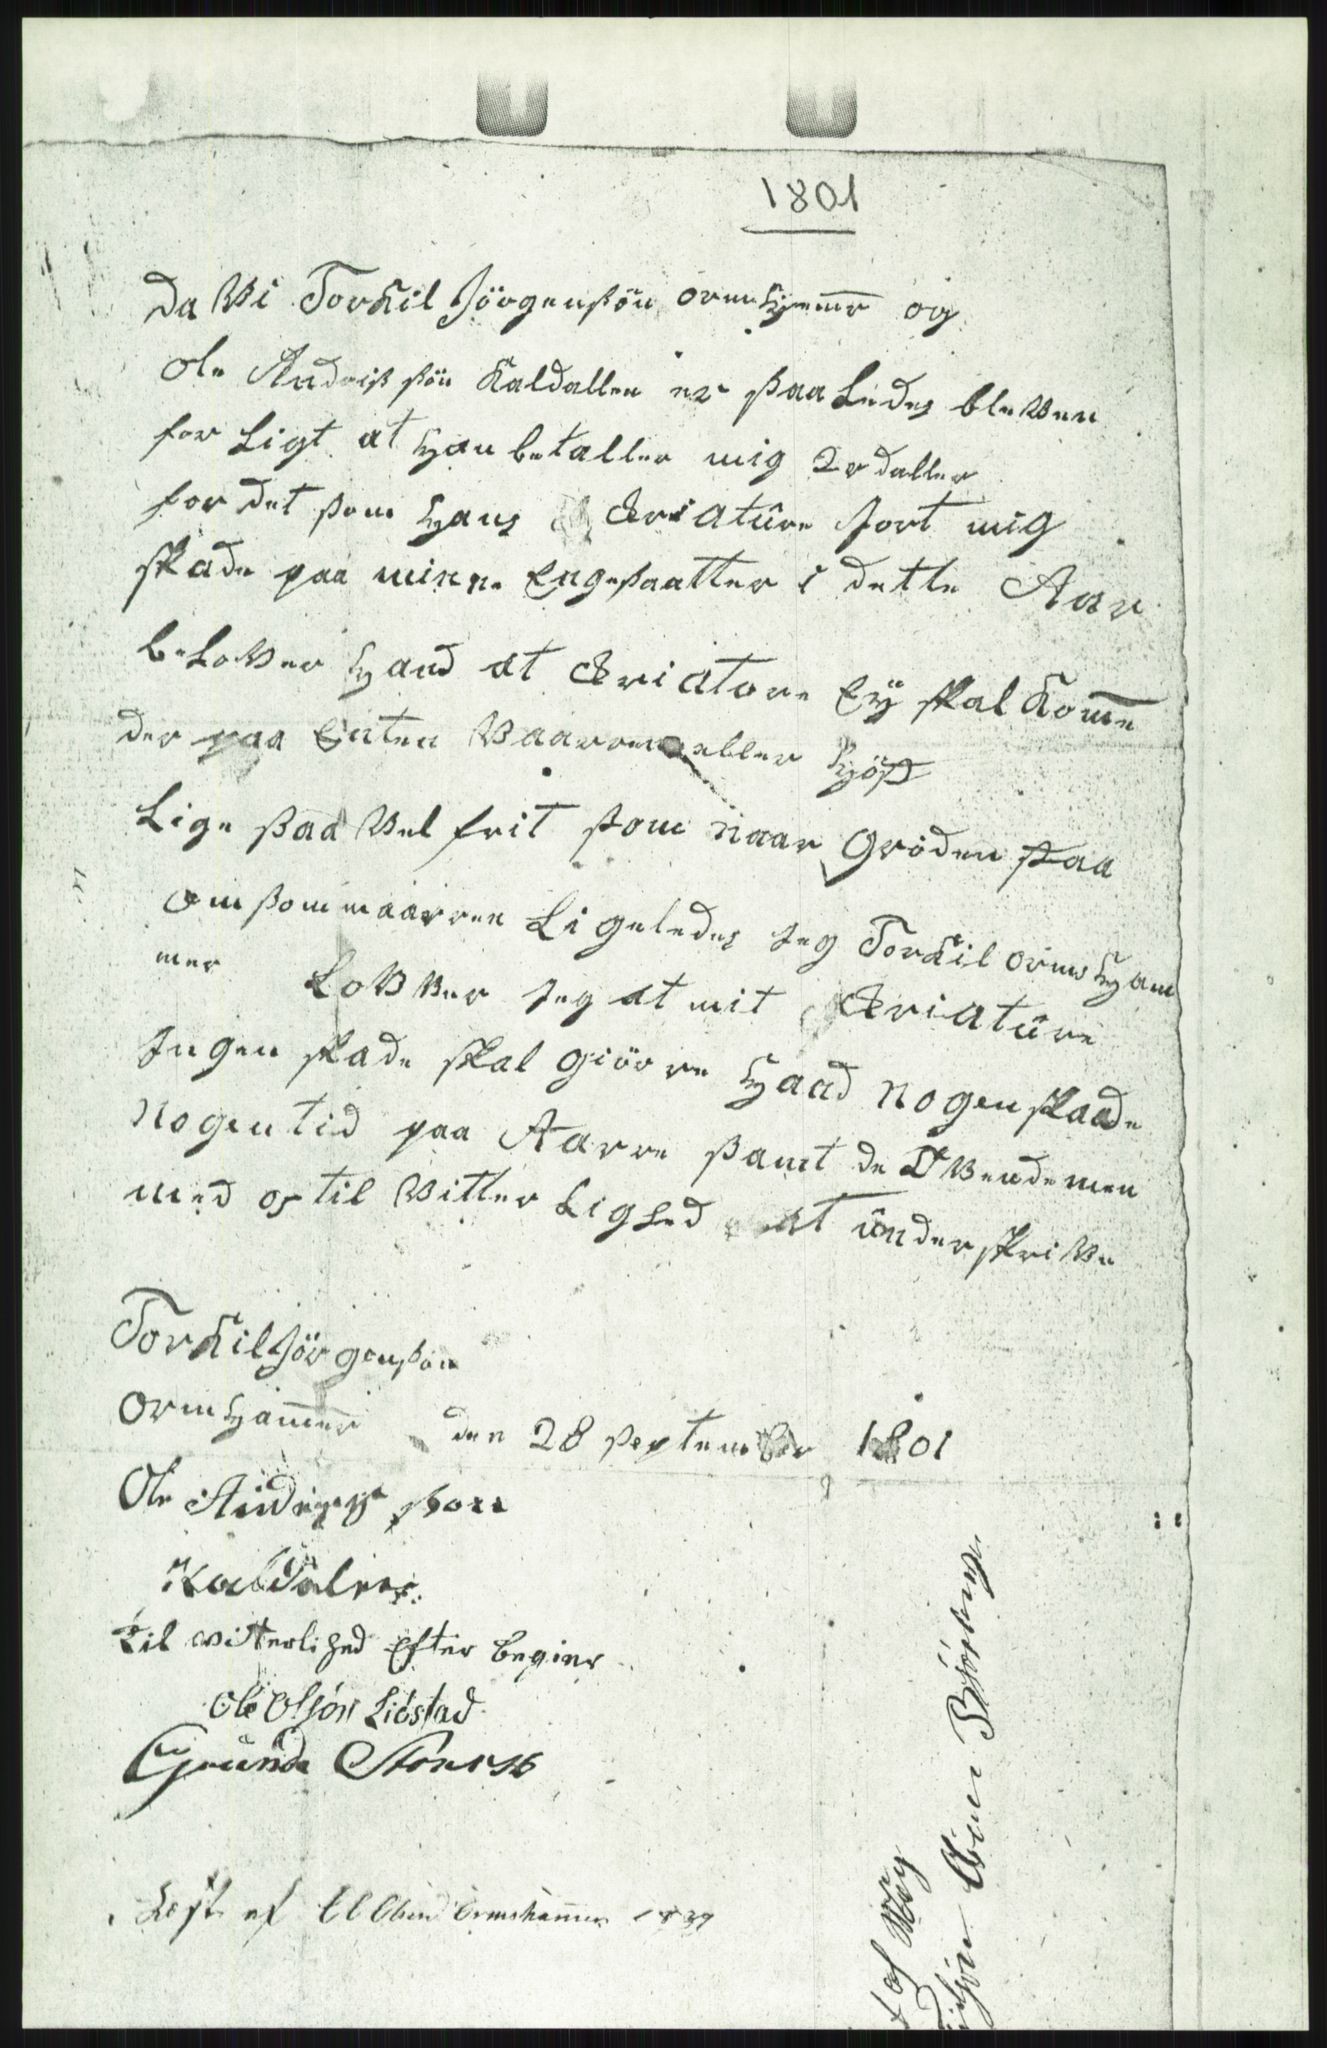 1801
Da Wi Torkil Jörgensön ormHamr og
ole Andriß sön Kaldallen er saa Ledes bleWen
for Ligt at Han betaller mig 2 rdaller
for det som Hans Criatûre Jort mig
skade paa minne Engesaatter i dette Aar
beloWer Hand at Criatore Eÿ skal Komme
der paa Enten Waarren eller Höst
Lige saa Wel frit som naar Gröden staa
om sommaarren Ligeledes Jeg Torkil orms Ham
mer LoWWer Jeg at mit Criatûre
Ingen skade skal giörre Hand nogen skaade
nogen tid paa Aarre samt de Wendemen
med os til Witter Lighed at ûnderskriWe
Torkil Jörgensön
OrmHamer den 28 september 1801
Ole Andriss sön
Kaldalen
til witterlighed Efter begier
Ole Olsön Liöstad
Gründe
Læst af Ormshammer 1839
af
Olsen